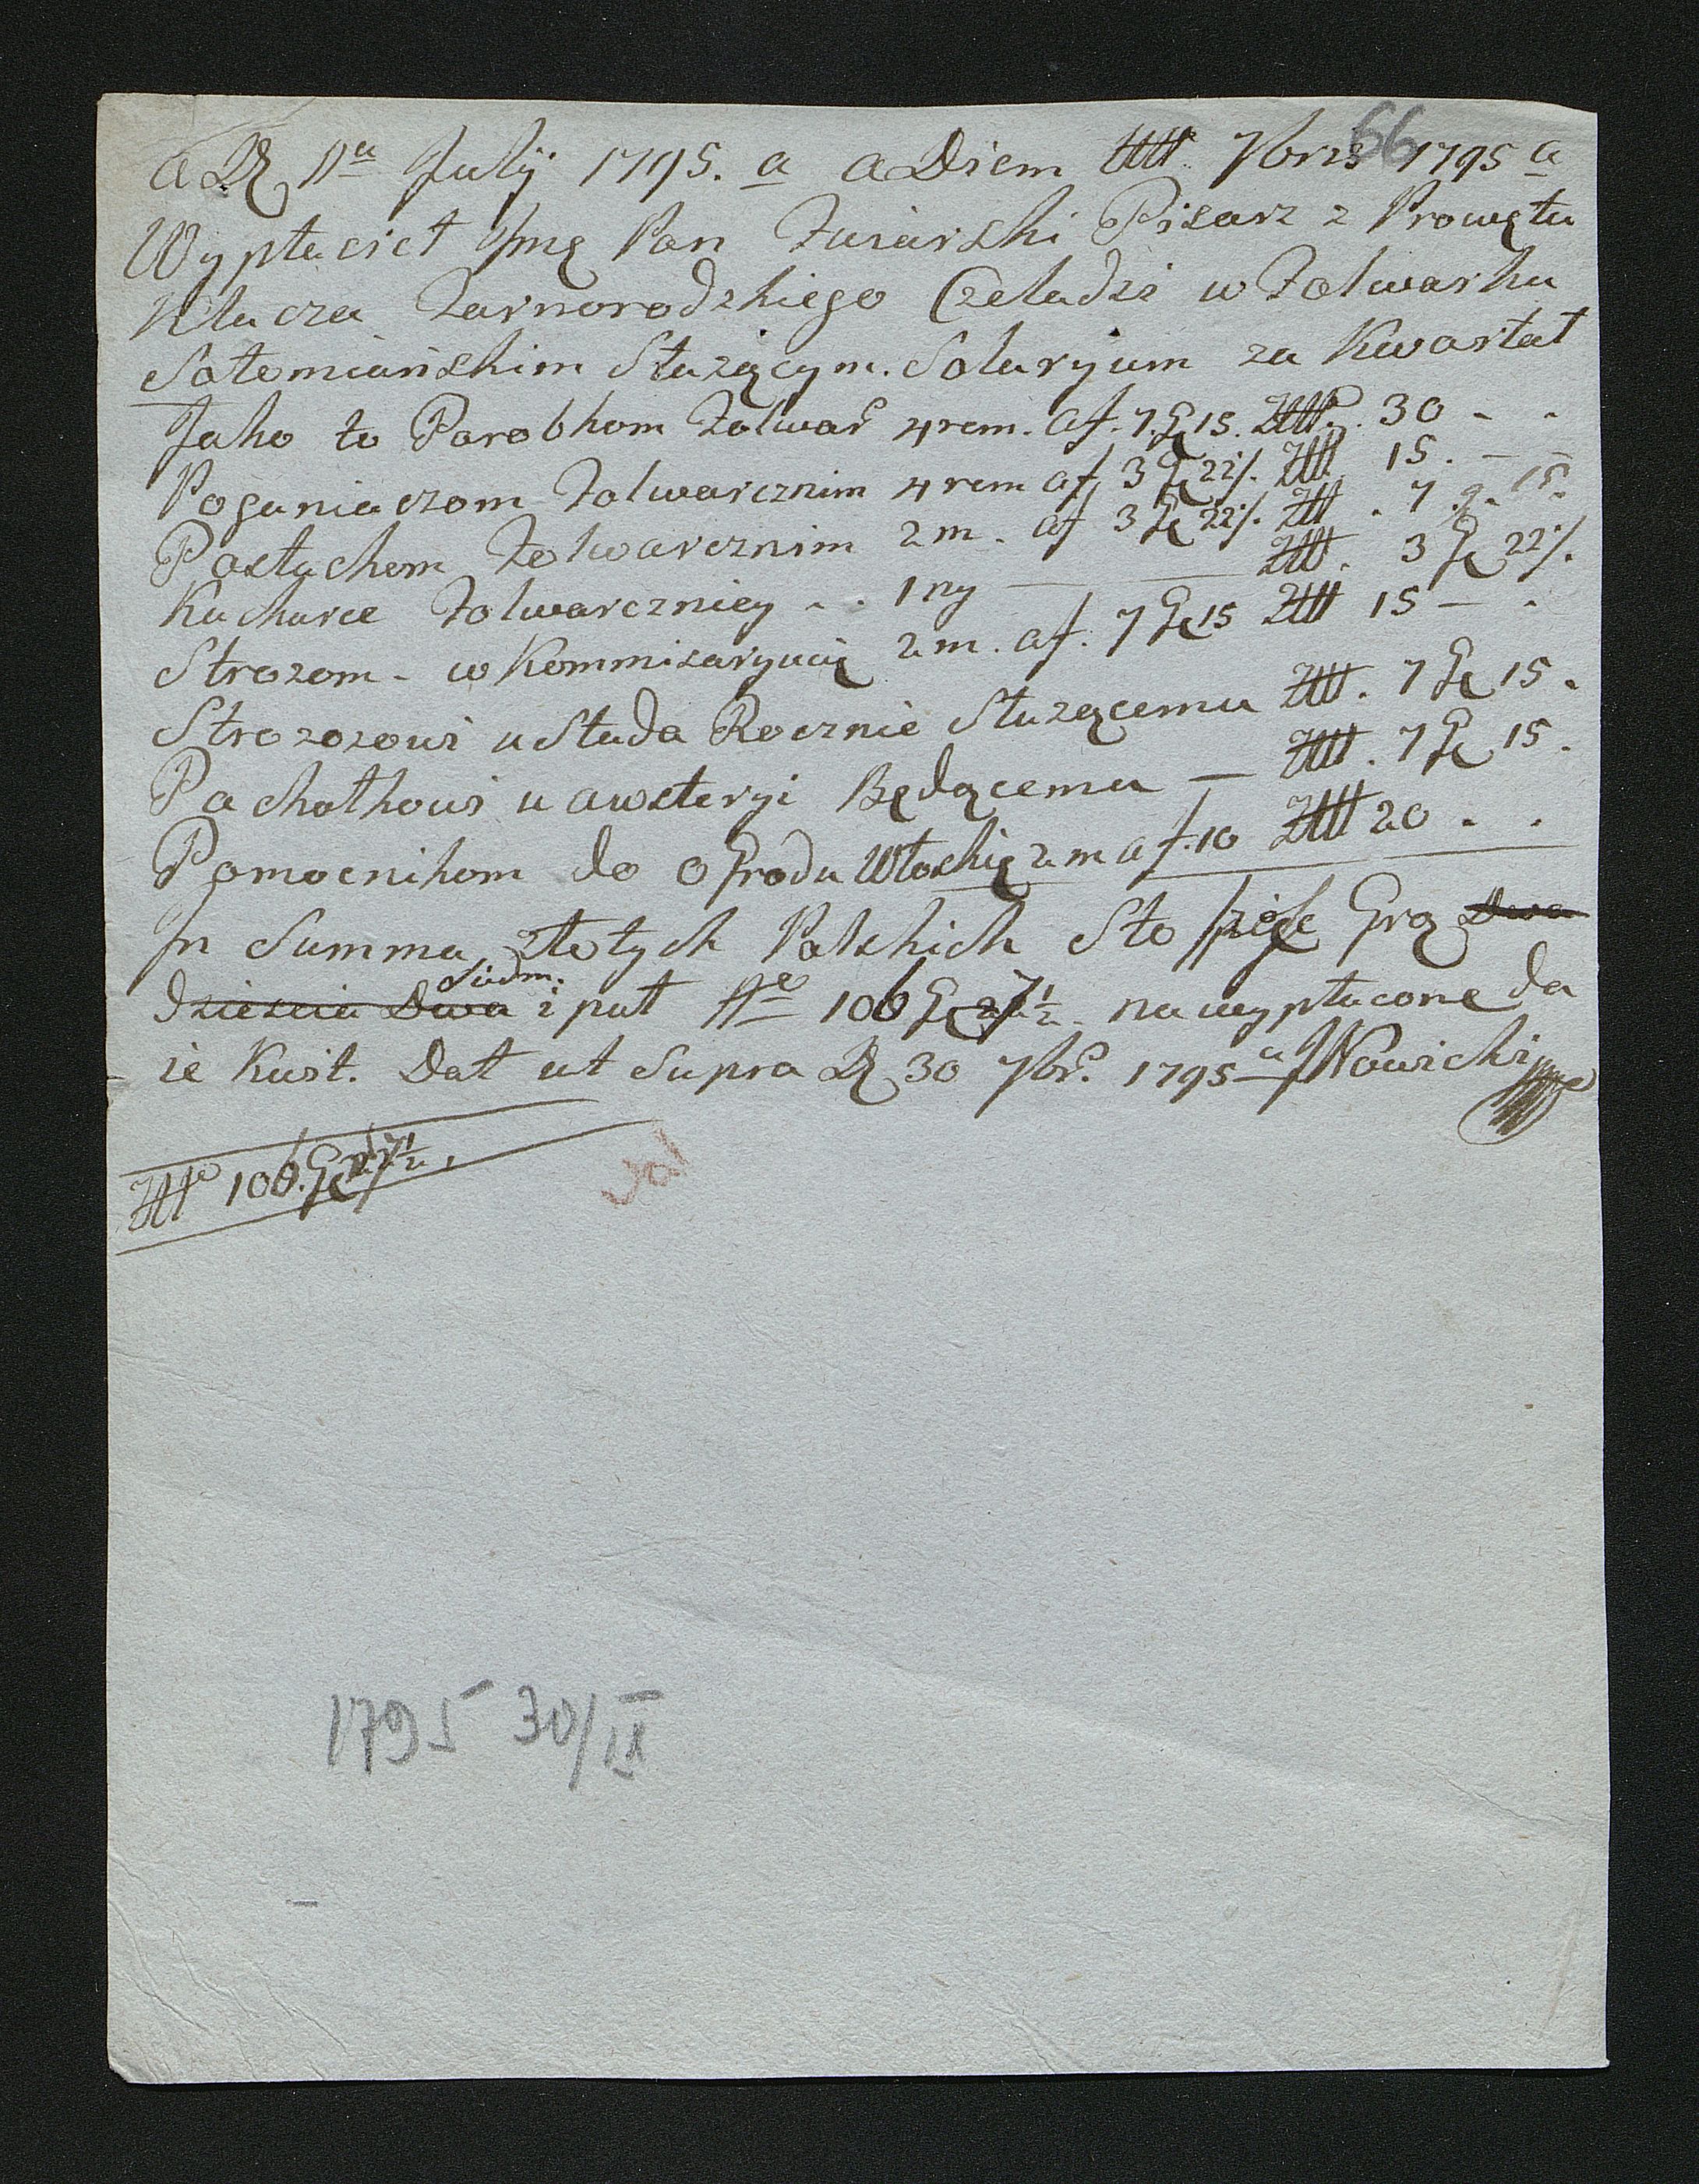 66
a D 1a July 1795. a a Diem Ult 7bris 1795 a
Wypłacił Jmć Pan Pisarz z Prowętu
Klucza Tarnorodzkiego Czeladzi w Folwarku
Sołomiańskim Służącym. Salaryjum za Kwartał
Jako to Parobkom Folwar 4rem. af. 7. g 15. Złł. 30 - .
Poganiaczom Folwarcznim 4rem af 3 g 22/. Złł 15. - -
Pastuchom Folwarcznim 2m. af 3 g 22/. Złł. 7. g. 15.
Kucharce Folwarczniey . . 1ny — — Złł. 3 g 22/.
Strozom - w Kommisaryucij 2m. af. 7 g 15 Złł 15 - .
Strozozowi u Stada Rocznie Służącemu Złł. 7 g 15.
Pachołkowi u austeryi Będącemu — Złł. 7 g 15.
Pomocnikom do Ogrodu Włoskię 2m af. 10 Złł 20 . .
In Summa złotych Polskich Sto sześć Gro Dwa
Siedm.
dziescia Dwa i puł fl 106 g 7 1/2 na wypłacone da
ie Kwit. Dat ut Supra D 30 7br. 1795 a JNowicki mp
Złł 106. g 7 1/2.
1795 30/IX